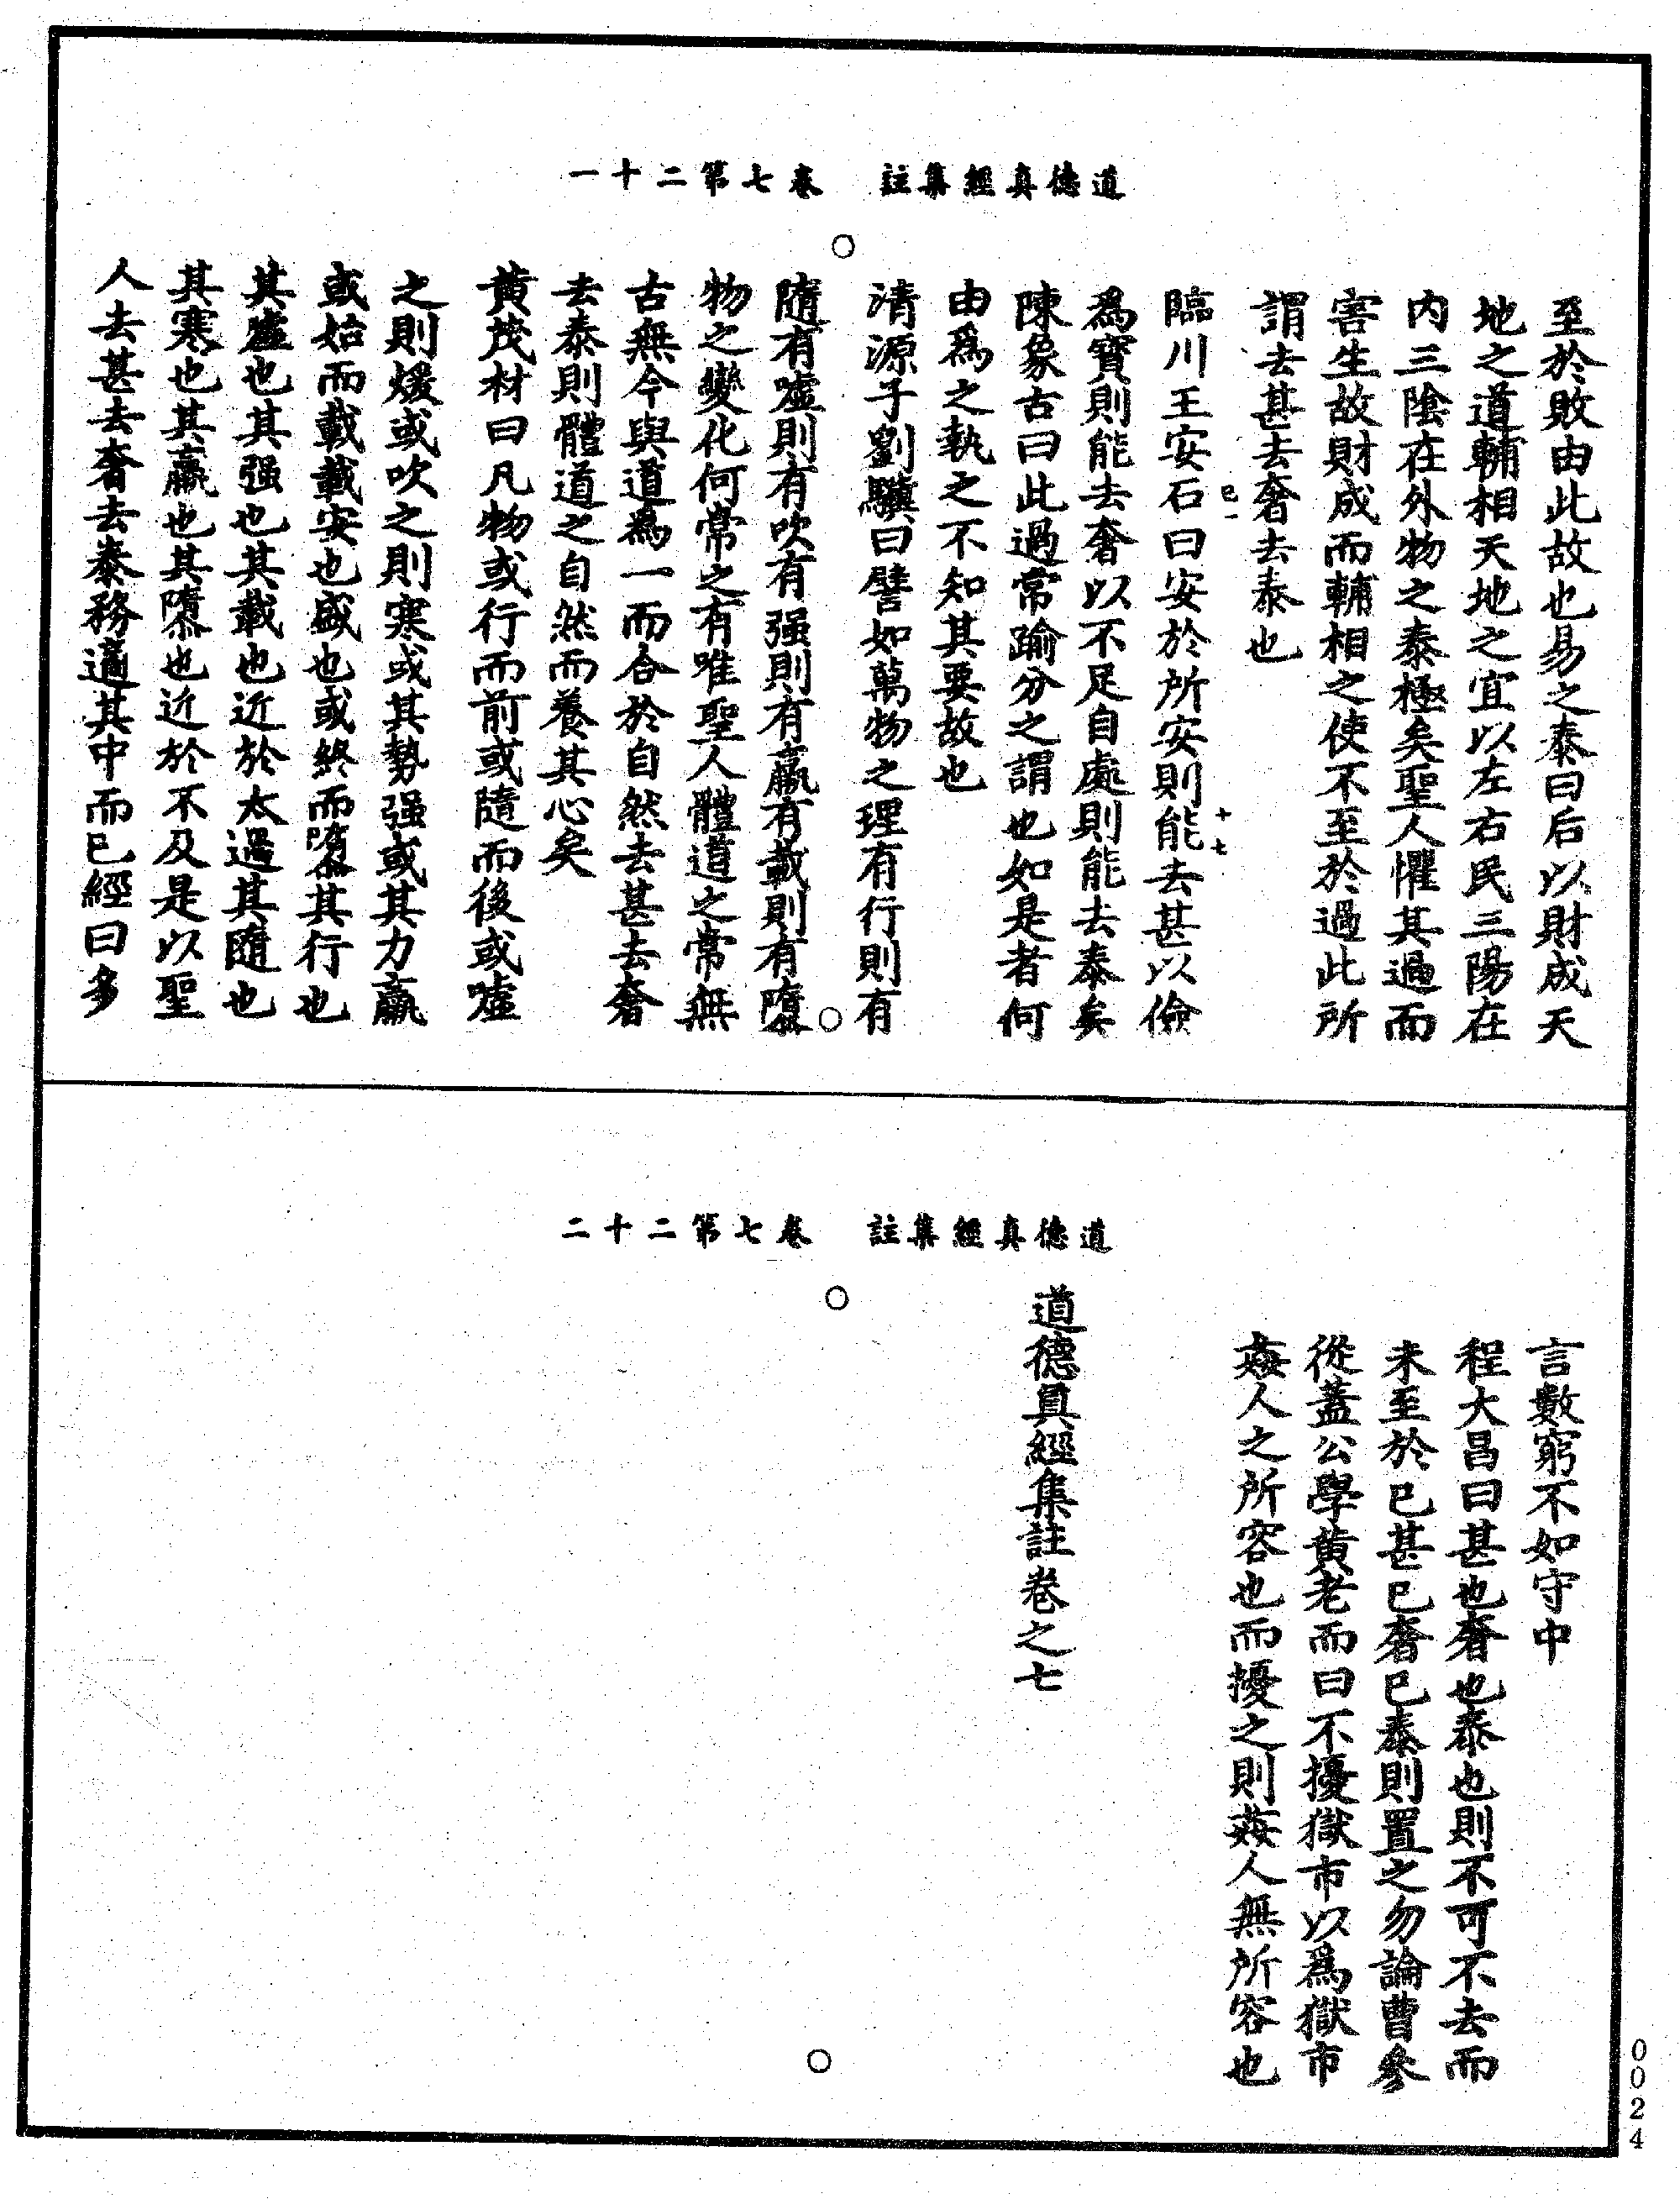 道德真經集註　卷七第二十一
至於敗由此故也易之泰曰后以財成天
地之道輔相天地之宜以左右民三陽在
内三陰在外物之泰極矣聖人懼其過而
害生故財成而輔相之使不至於過此所
謂去甚去奢去泰也
臨川王安石曰安於所安則能去甚以儉
爲寶則能去奢以不足自處則能去泰矣
陳象古曰此過常踰分之謂也如是者何
由爲之執之不知其要故也
清源子劉驥曰譬如萬物之理有行則有
隨有噓則有吹有强則有羸有載則有隳
物之變化何常之有唯聖人體道之常無
古無今與道爲一而合於自然去甚去奢
去泰則體道之自然而養其心矣
黄茂材曰凡物或行而前或隨而後或噓
之則煖或吹之則寒或其勢强或其力羸
或始而載載安也盛也或終而隳其行也
其噓也其强也其載也近於太過其隨也
其寒也其羸也其隳也近於不及是以聖
人去甚去奢去泰務適其中而已經曰多
巳一
十七
道德真經集註　卷七第二十二
言數窮不如守中
程大昌曰甚也奢也泰也則不可不去而
未至於已甚已奢已泰則置之勿論曹參
從蓋公學黄老而曰不擾獄市以爲獄市
姦人之所容也而擾之則姦人無所容也
道德真經集註卷之七
0024